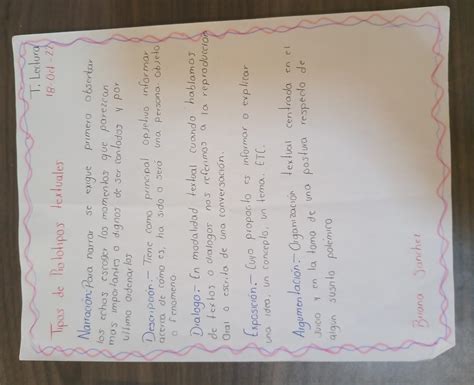 T. Lectura
18-Oct-22
Tipos de Prototipos textuales
Narración:- Para narrar se exigue primero observar
los echos escoger los momentos que parezcan
mas importantes o dignos de ser contados y por
ultimo ordenarlos
Descripción:- Tiene como principal objetivo informar
acerca de cómo es, ha sido o será una persona objeto
o fenomeno
Dialogo:- En modalidad textual cuando hablamos
de textos o dialogos nos referimos a la reproduccion
Oral o escrita de una conversación.
Exposición:- Cuyo proposito es informar o explicar
una idea, un concepto, un tema. ETC.
Argumentación:- Organización textual centrada en el
Juicio y en la toma de una postura respecto de
algun polemico
Sánchez